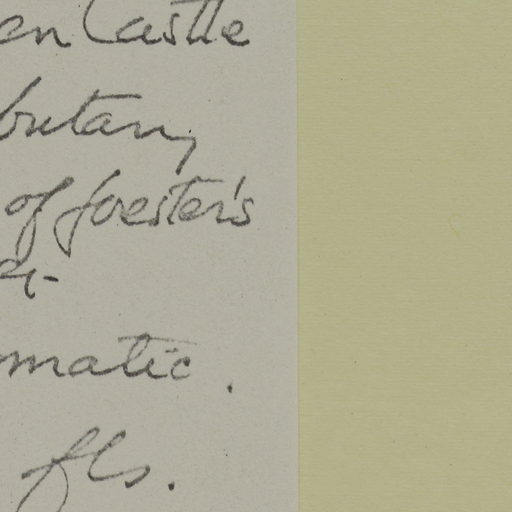 en Castle
butary
of forester's
omatic.
fls.